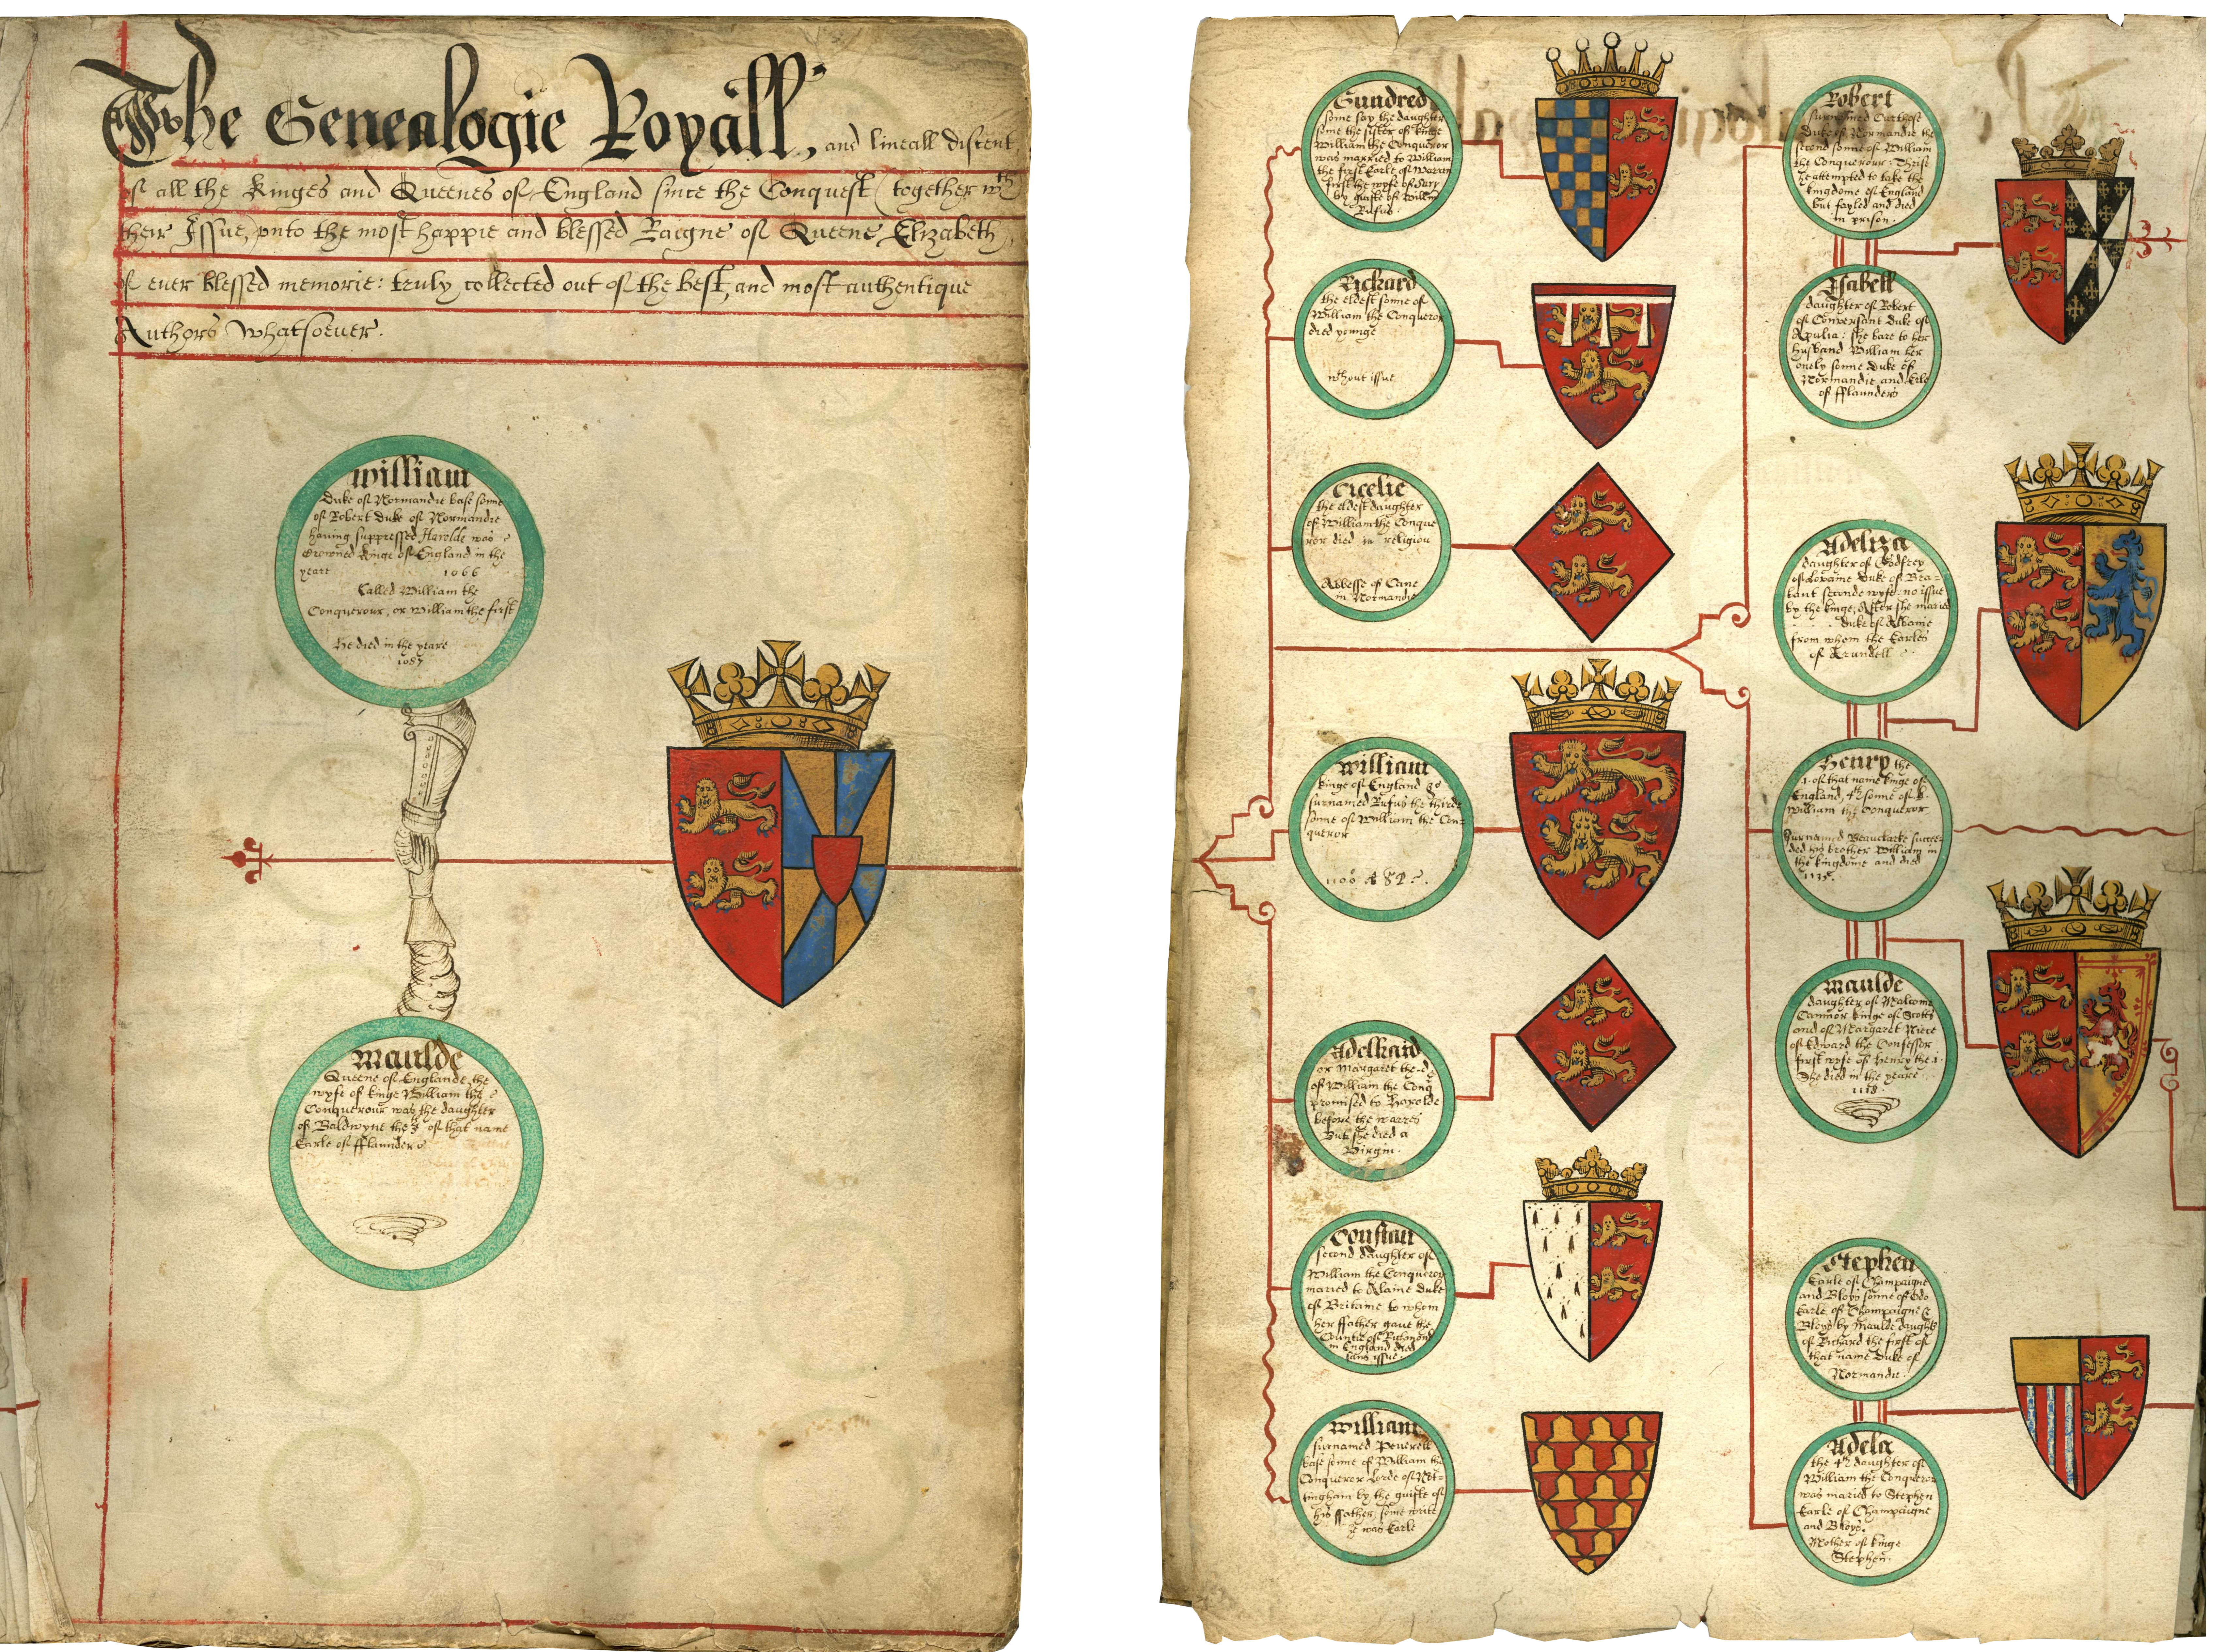 The Genealogie Royall, and lineall discent
of all the Kinges and Queenes of England since the Conquest (together wth
their Issue, unto the most happie and blessed Raigne of Queene Elizabeth,
of ever blessed memorie: truly collected out of the best, and most authentique
Authors whatsoever.
William
Duke of Normandie base sonne
of Robert Duke of Normandie
having suppressed Harolde was
Crowned Kinge of England in the
yeare 1066
Called William the
Conquerour, or William the first
He died in the yeare
1087
Maulde
Queene of Englande, the
wyfe of kinge William the
Conquerour was the daughter
of Baldwyne the of that name
Earle of fflanders
Gundred
some say the daughter
some the sister of kinge
William the Conqueror
was married to William
the first Earle of Warren
first the wyfe of
by guifte of Willm
Rufus.
Richard
the eldest sonne of
William the Conqueror
died younge
wthout issue
Cicelie
the eldest daughter
of William the Conque
ror died in religion
Abbesse of Cane
in Normandie
William
kinge of England
surnamed Rufus the thirde
sonne of William the Con-
queror
1100
Adelhaid
or Margaret the
of William the Conq
promised to Harolde
before the warres
But she died a
Virgin.
Constan
second daughter of
William the Conqueror
maried to Alaine Duke
of Britaine to whom
her ffather gave the
Countie of Richmond
in England died
sans issue.
William
surnamed Peverell
base sonne of William the
Conqueror Lorde of Not-
tingham by the guifte of
his ffather, some write
he was Earle
Robert
surnamed Curthose
duke of Normandie the
second sonne of William
the Conquerour: Thrise
he attempted to take the
kingdome of England
but fayled and died
in prison.
Isabell
daughter of Robert
of Conversant Duke of
Apulia: she bare to her
husband William her
onely sonne Duke of
Normandie and Erle
of fflanders
Adeliza
daughter of Godfrey
of Loraine Duke of Bra-
bant seconde wyfe: no issue
by the kinge; After she maried
duke of Albanie
from whom the Earles
of Arundell
Henry the
1. of that name kinge of
England, 4th sonne of k.
William the Conqueror
Surnamed Beauclarke succee-
ded his brother William in
the kingdome and died
1135.
Maulde
daughter of Malcome
Canmor kinge of Scotts
and of Margaret Niece
of Edward the Confessor
first wyfe of Henry the 1.
She died in the yeare
1118.
Stephen
Earle of Champaigne
and Bloys sonne of Odo
Earle of Champaigne &
Bloys by Maulde daught
of Richard the first of
that name Duke of
Normandie.
Adela
the 4th daughter of
William the Conqueror
was maried to Stephen
Earle of Champaigne
and Bloys.
Mother of kinge
Stephen.